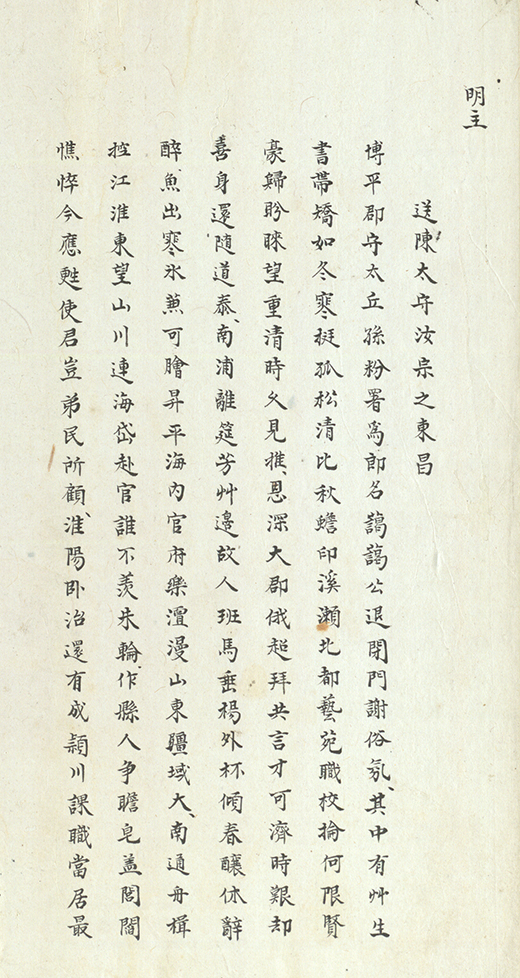 明主
送陳太守汝宗之東昌
博平郡守太丘孫粉署為郎名藹藹公退閉門謝俗氛其中有艸生
書帶矯如冬寒挺孤松清比秋蟾印溪瀨北都藝苑職校掄何限賢
豪歸盼睞望重清時久見推恩深大郡俄超拜共言才可濟時艱却
喜身還随道泰南浦離筵芳艸邊故人班馬垂楊外杯傾春釀休辭
醉魚出寒氷兼可膾昇平海內官府樂澶漫山東疆域大南通舟楫
控江淮東望山川連海岱赴官誰不羨朱輪作縣人争瞻皂盖閭閻
憔悴今應甦使君豈弟民所顧淮陽卧治還有成潁川課職當居最